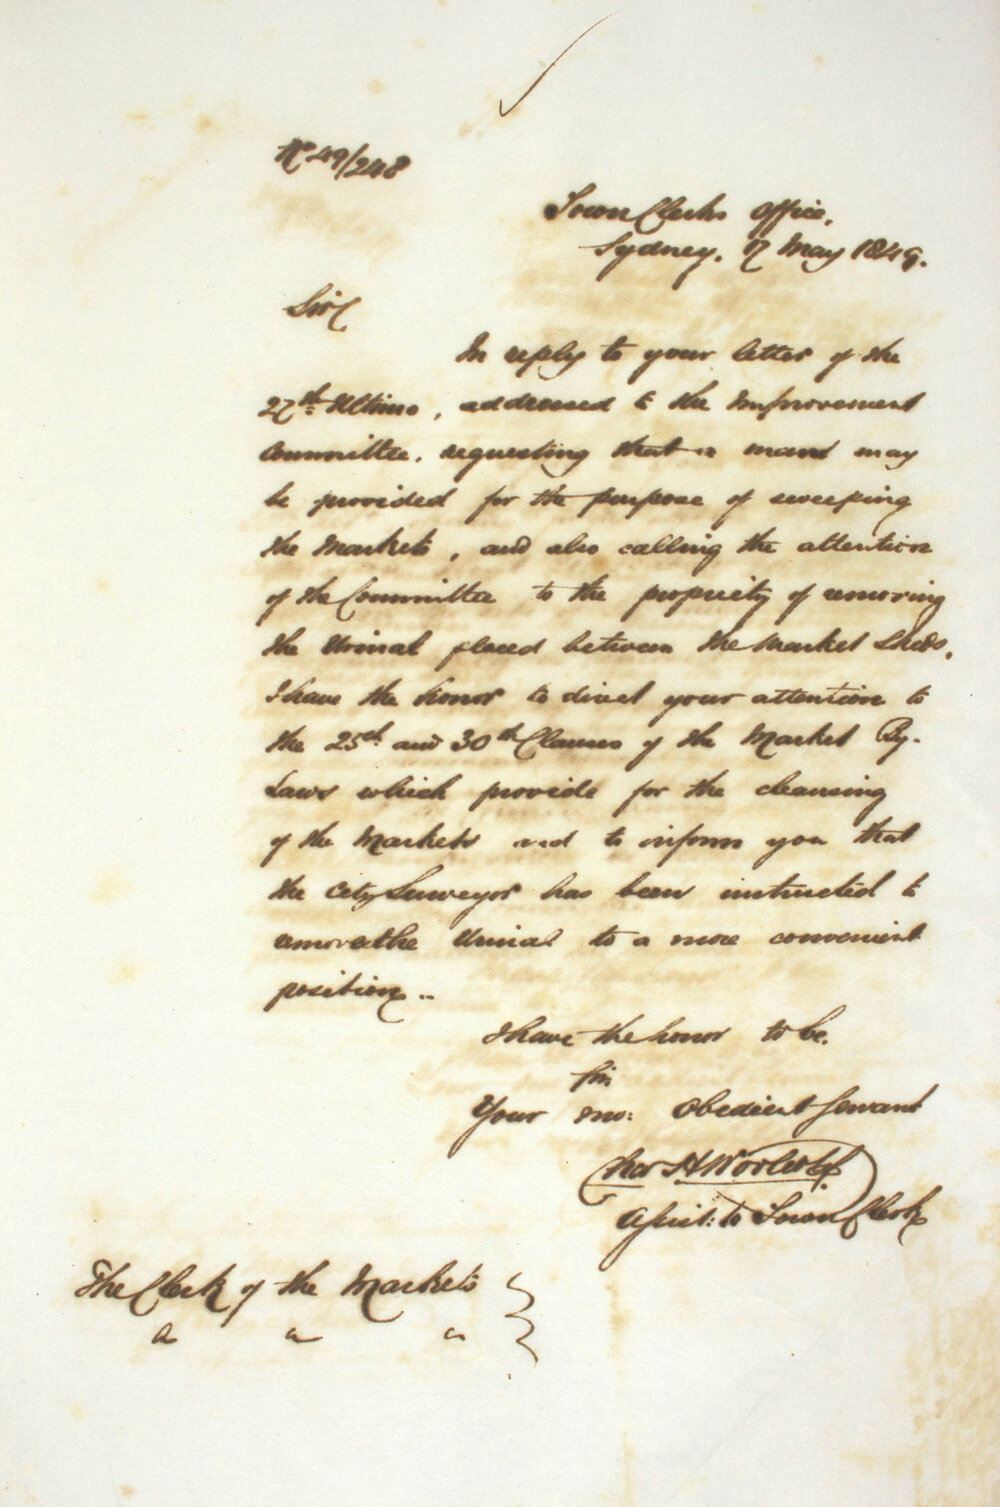 No 49/248
Town Clerks Office,
Sydney, 17 May 1849.
Sir
In reply to your letter of the
27th Ultimo, addressed to the Improvement
Committee, requesting that a man may
be provided for the purpose of sweeping
the Markets, and also calling the attention
of the Committee to the propriety of removing
the Urinal placed between the Market Sheds,
I have the honor to direct your attention to
the 25th and 30th Clauses of the Market By-
Laws which provide for the cleansing
of the Markets and to inform you that
the City Surveyor has been instructed to
remove the Urinal to a more convenient
position..
I have the honor to be,
Sir,
Your mo: Obedient Servant
Chas H Woolcott
Assist: to Town Clerk
The Clerk of the Markets